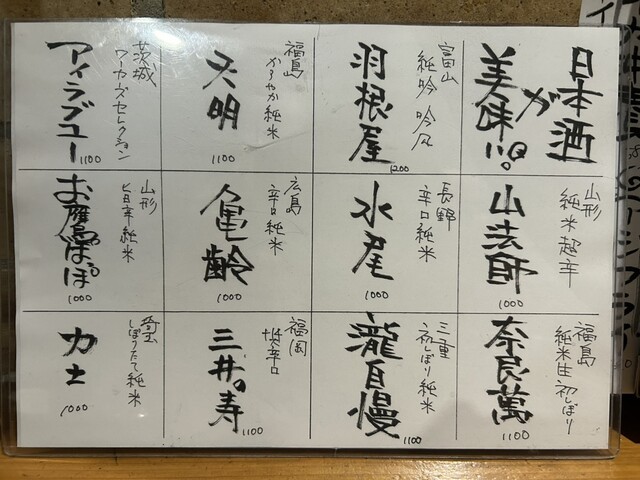 日本酒
が
美味い。
富山
純吟 吟凡
羽根屋
1200
福島
かろやか純米
天明
1100
茨城
ワーカーズセレクション
アイラブユー
1100
山形
純米超辛
山法師
1000
長野
辛口純米
水尾
1000
広島
辛口純米
亀齢
1000
山形
ヒ首辛純米
お雁島ぽっぽ
1000
福島
純米生 初しぼり
奈良萬
1100
三重
初しぼり純米
瀧自慢
1100
福岡
辛口
三井の寿
1100
埼玉
しぼりたて純米
力士
1000